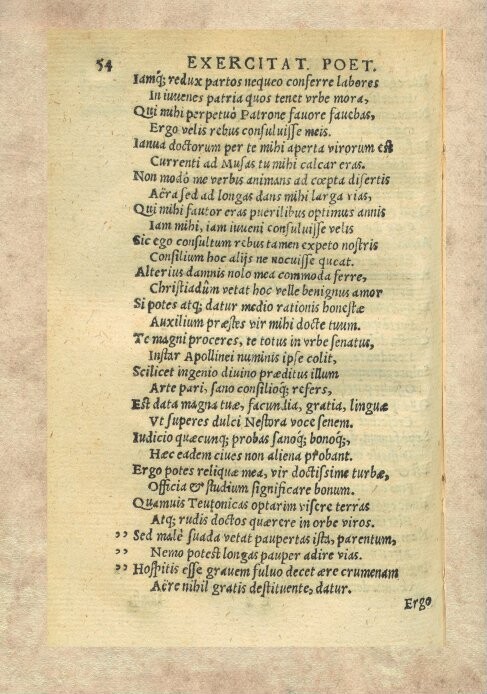 54 EXERCITAT. POET.
Iamq́; redux partos nequeo conferre labores
In iuuenes patria quos tenet vrbe mora,
Qui mihi perpetuò Patrone fauore fauebas,
Ergo velis rebus consuluisse meis.
Ianua doctorum per te mihi aperta virorum est
Currenti ad Musas tu mihi calcar eras.
Non modò me verbis animans ad cœpta disertis
Aëra sed ad longas dans mihi larga vias,
Qui mihi fautor eras puerilibus optimus annis
Iam mihi, iam iuueni consuluisse velis
Sic ego consultum rebus tamen expeto nostris
Consilium hoc alijs ne nocuisse queat.
Alterius damnis nolo mea commoda ferre,
Christiadûm vetat hoc velle benignus amor
Si potes atq; datur medio rationis honestæ
Auxilium præstes vir mihi docte tuum.
Te magni proceres, te totus in vrbe senatus,
Instar Apollinei numinis ipse colit,
Scilicet ingenio diuino præditus illum
Arte pari, sano consilioq́; refers,
Est data magna tuæ, facundia, gratia, linguæ
Vt superes dulci Nestora voce senem.
Iudicio quæcunq; probas sanoq́; bonoq́;,
Hæc eadem ciues non aliena probant.
Ergo potes reliquæ mea, vir doctissime turbæ,
Officia & studium significare bonum.
Quamuis Teutonicas optarim visere terras
Atq; rudis doctos quærere in orbe viros.
,, Sed malè suada vetat paupertas ista, parentum,
,, Nemo potest longas pauper adire vias.
,, Hospitis esse grauem fuluo decet ære crumenam
Aëre nihil gratis destituente, datur.
Ergo